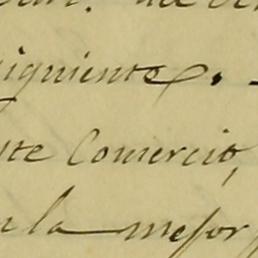 siguiente.
ste Comercio,
en la mejor